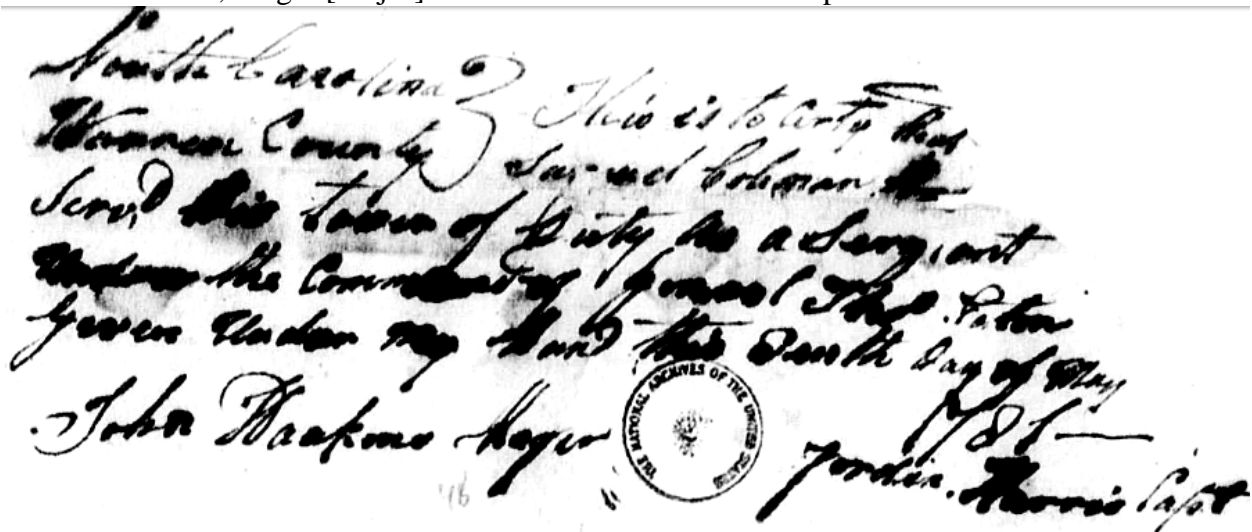 North Carolina } This is to Certy that
Warren County } Samuel Coleman
Serv,d this tower of Duty as a Sergeant
Under the Command of General Tho.s Eaton
Given Under my Hand this Tenth Day of May
1781
John Hawkins Majer
Jordin Harris Capt
THE NATIONAL ARCHIVES OF THE UNITED STATES